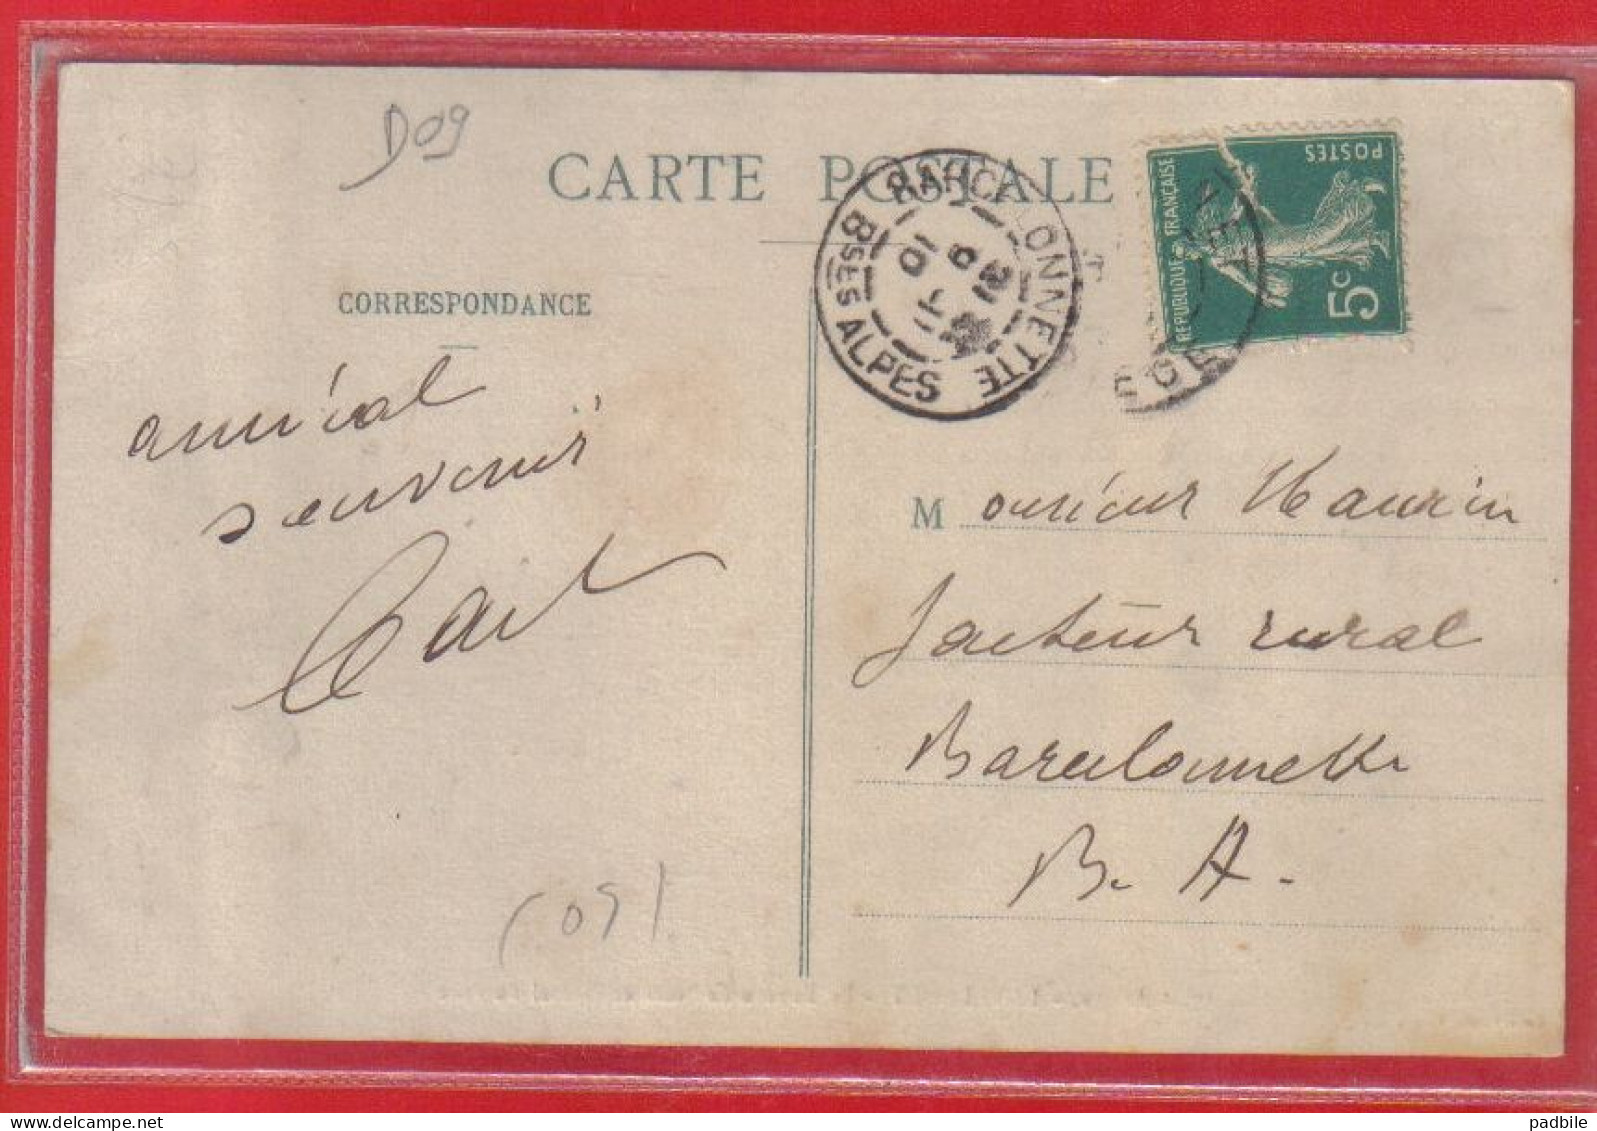 D09
CARTE POSTALE
BARCELONNETTE
Bses ALPES
POSTES
REPUBLIQUE FRANÇAISE
5c
CORRESPONDANCE
amical
souvenir
Monsieur Maurin
facteur rural
Barcelonnette
B. A.
padbile